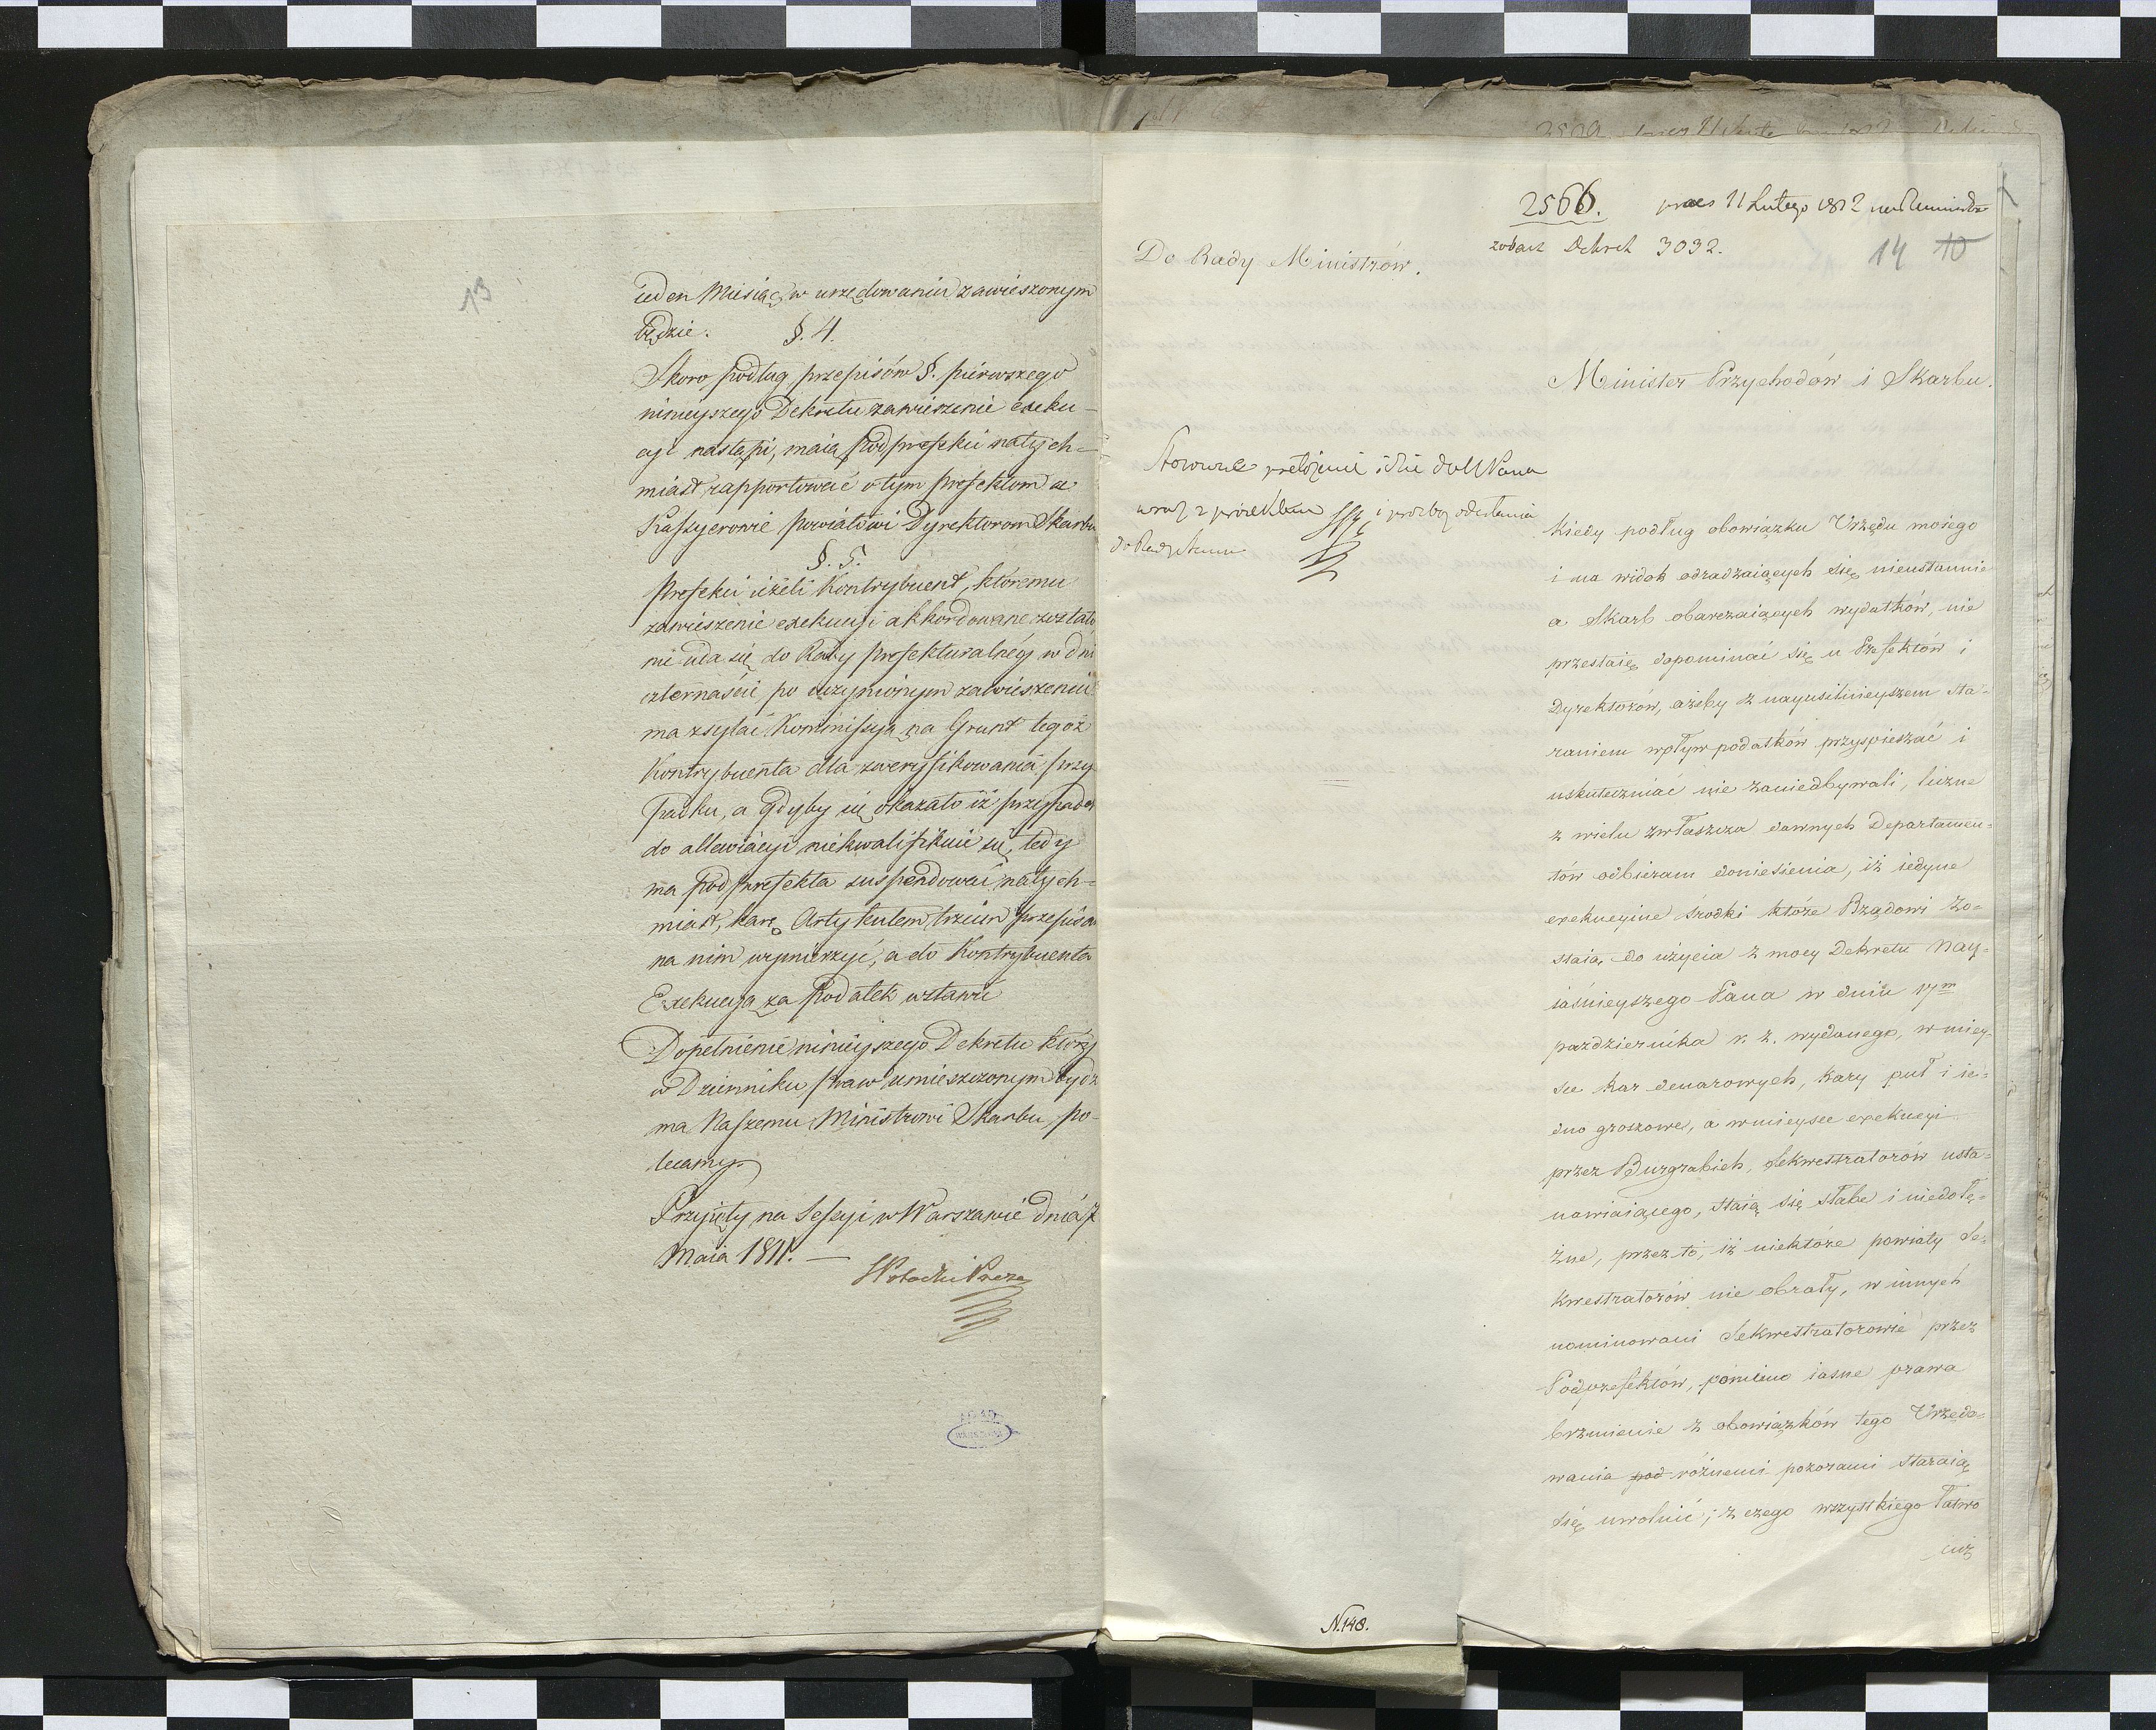 13
ieden Miesiąc w urzędowaniu zawieszonym
będzie.
§. 4.
Skoro podług przepisów §. pierwszego
ninieyszego Dekretu zawieszenie exeku-
cyi nastąpi, maią Podprefekci natych=
miast rapportować o tym Prefektom a
Kassyerowie Powiatowi Dyrektorom Skarbu
§. 5.
Prefekci ieżeli Kontrybuent, któremu
zawieszenie exekucyi akkordowane zostało
nie uda się do Rady Prefekturalnéy w dni
czternaście po uczynionym zawieszeniu
ma zsyłać Kommissyą na Grunt tegoż
Kontrybuenta dla zweryfikowania przy
padku, a gdyby się okazało iż przypadek
do allewiacyi niekwalifikuie się, tedy
ma Podprefekta suspendować natych=
miast, karę Artykułem trzecim przepisaną
na nim wymierzyć, a do Kontrybuenta
Exekucyą za Podatek wstawić
Dopełnienie ninieyszego Dekretu który
w Dzienniku Praw umieszczonym bydź
ma Naszemu Ministrowi Skarbu po-
lecamy.
Przyięty na Sessyi w Warszawie dnia 7
Maia 1811. —
2566. praes 11 Lutego 1812
zobacz Dekret 3032.
14 10
Do Rady Ministrów.
Minister Przychodów i Skarbu.
Stosowne przełożenie idzie do NPana
wraz z proiektem i prozbą odesłania
do Rady Stanu
Kiedy podług obowiązku Urzędu moiego
i na widok odradzaiących się nieustannie
a Skarb obarczaiących wydatków, nie
przestaię dopominać się u Prefektów i
Dyrektorów, ażeby z nayusilnieyszem sta=
raniem wpływ podatków przyspieszać i
uskuteczniać nie zaniedbywali, liczne
z wielu zwłaszcza dawnych Departamen=
tów odbieram doniesienia, iż iedyne
exekucyine środki które Rządowi zo=
staią do użycia z mocy Dekretu Nay=
iaśnieyszego Pana w dniu 17m
października r. z. wydanego, w miey
sce kar denarowych, kary puł i ie=
dno groszowe, a w mieysce exekucyi
przez Burgrabich, Sekwestratorów usta=
nawiaiącego, staią się słabe i niedołę=
żne, przez to, iż niektóre powiaty Se=
kwestratorów nie obrały, w innych
nominowani Sekwestratorowie przez
Podprefektów, pomimo iasne prawa
brzmienie z obowiązków tego Urzędo=
wania pod różnemi pozorami staraią
się uwolnić; z czego wszystkiego łatwo
iuż
N. 148.